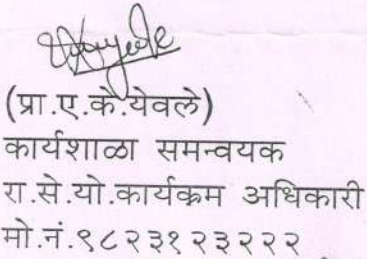 (प्रा.ए.के.येवले)
कार्यशाळा समन्वयक
रा.से.यो.कार्यक्रम अधिकारी
मो.नं.९८२३१२३२२२